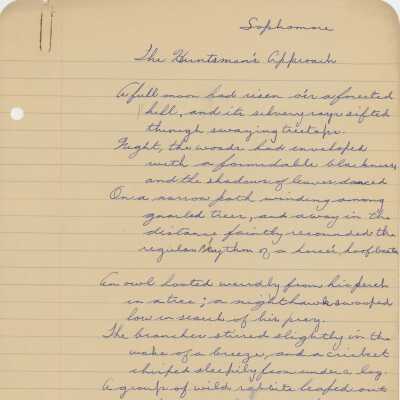 Sophomore
The Huntsman's Approach
A full moon had risen o'er a forested
hill, and its silvery rays sifted
through swaying treetops.
Night, the woods had enveloped
with a formidable blackness,
and the shadows of leaves danced
On a narrow path winding among
gnarled trees, and away in the
distance faintly resounded the
regular rhythm of a horse's hoofbeats
An owl hooted weirdly from his perch
in a tree; a nighthawk swooped
low in search of his prey.
The branches stirred slightly in the
wake of a breeze, and a cricket
chirped sleepily from under a log.
A group of wild rabbits leaped out